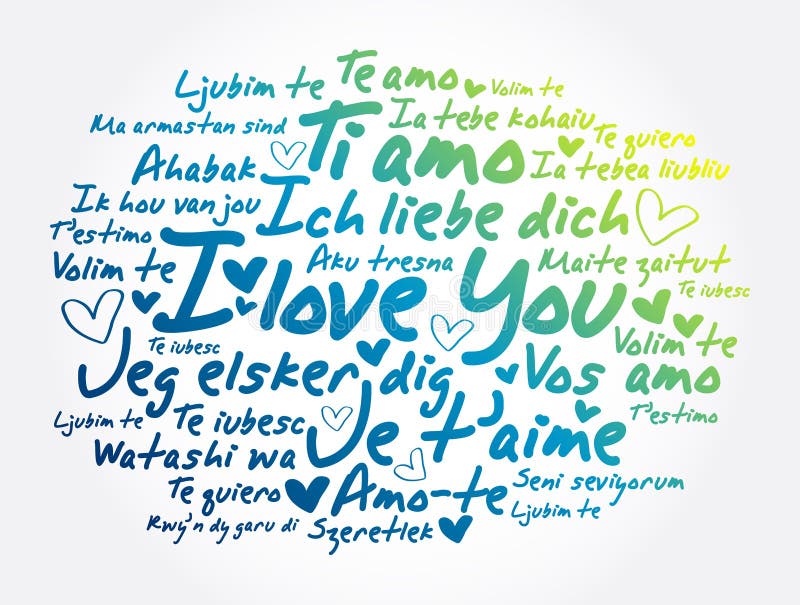 Ljubim te
Te amo
Volim te
Ma armastan sind
Ia tebe kohaiu
Te quiero
Ti amo
Ahabak
Ia tebea liubliu
Ik hou van jou
Ich liebe dich
T'estimo
Volim te
Aku tresna
Maite zaitut
Te iubesc
I love You
Te iubesc
Volim te
Jeg elsker dig
Vos amo
Ljubim te
Te iubesc
Je t'aime
T'estimo
Watashi wa
Te quiero
Amo-te
Seni seviyorum
Ljubim te
Rwy'n dy garu di
Szeretlek